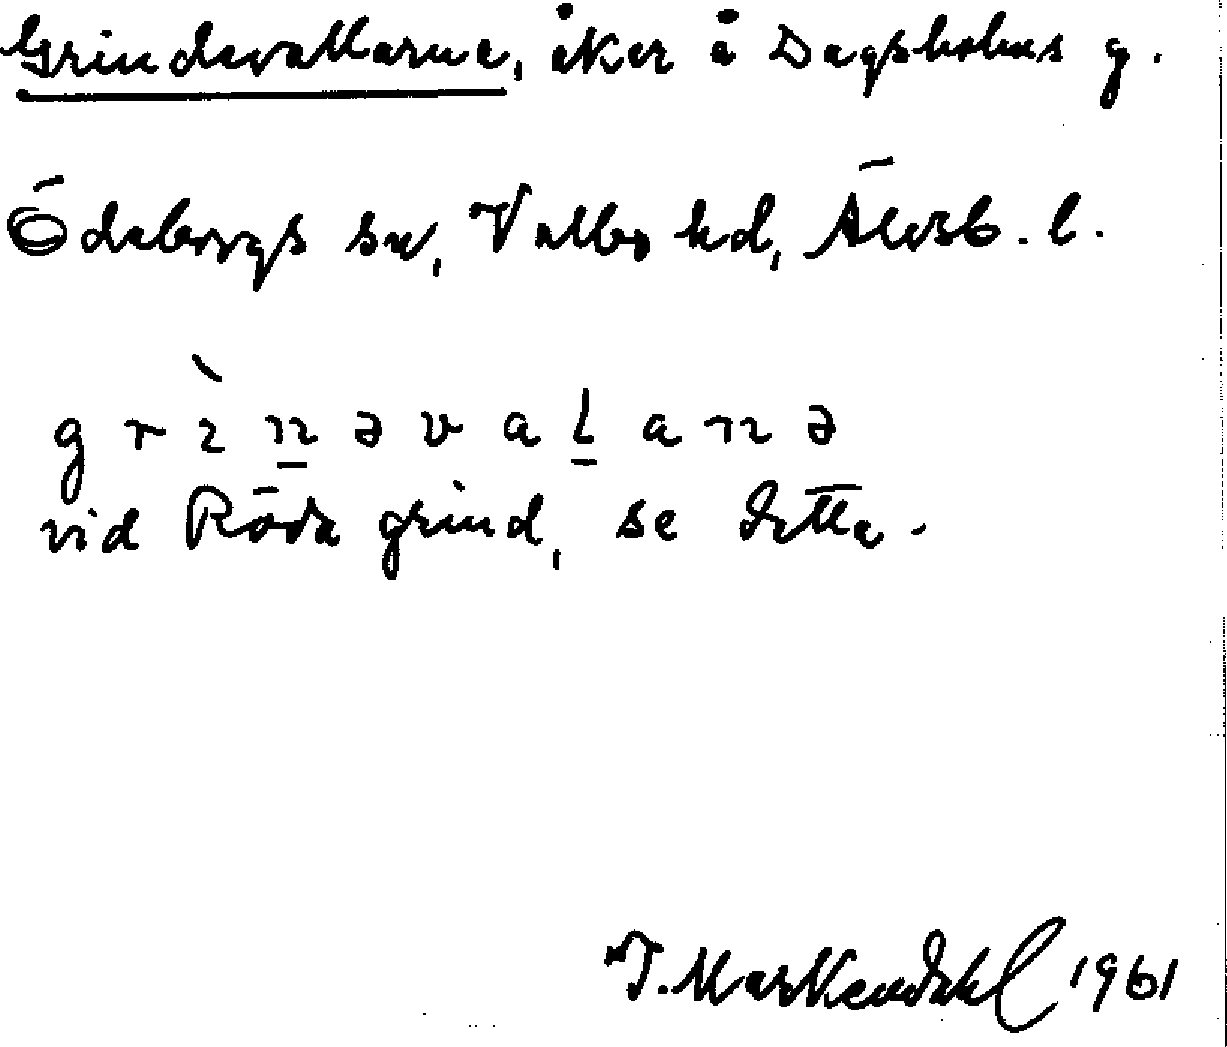 Grindevallarne, åker å Dagsholms g.
Ödeborgs sn, Valbo hd, Älvsb. l.
grı̀n̲əval̲anə
vid Röda grind, se detta.
I. Markendahl 1961